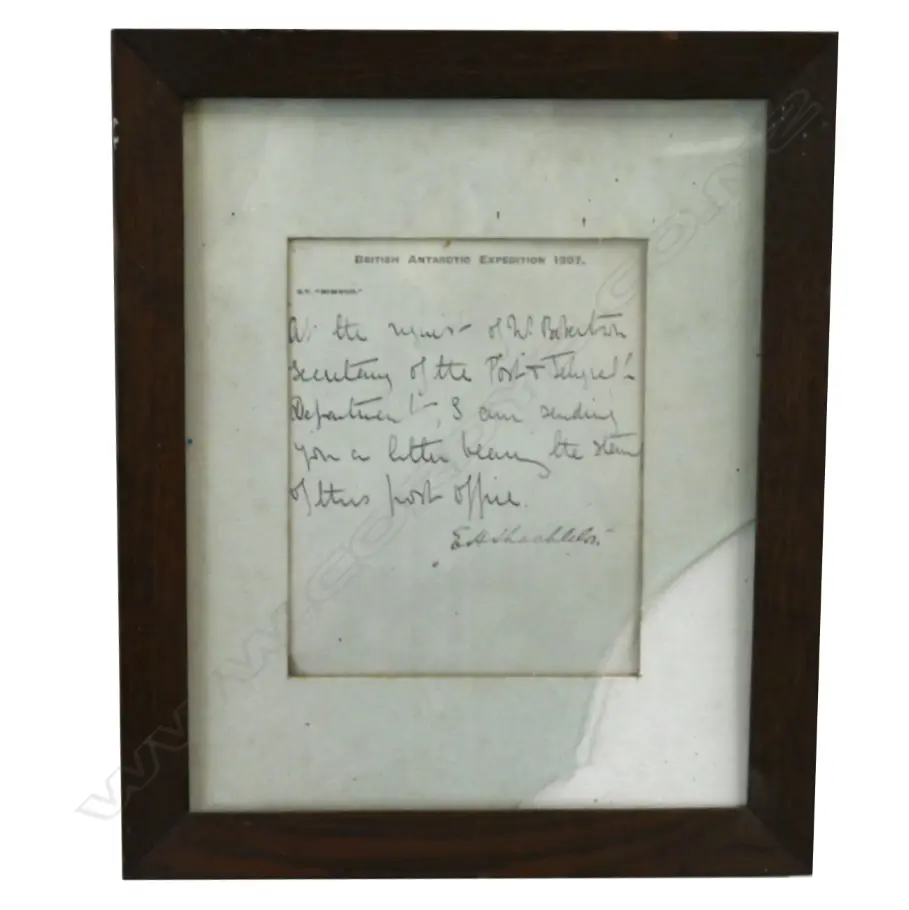 BRITISH ANTARCTIC EXPEDITION 1907.
S.Y. "NIMROD."
At the request of Mr Robertson
Secretary of the Post &
Department, I am sending
you a letter bearing the
of this post office.
E H Shackleton